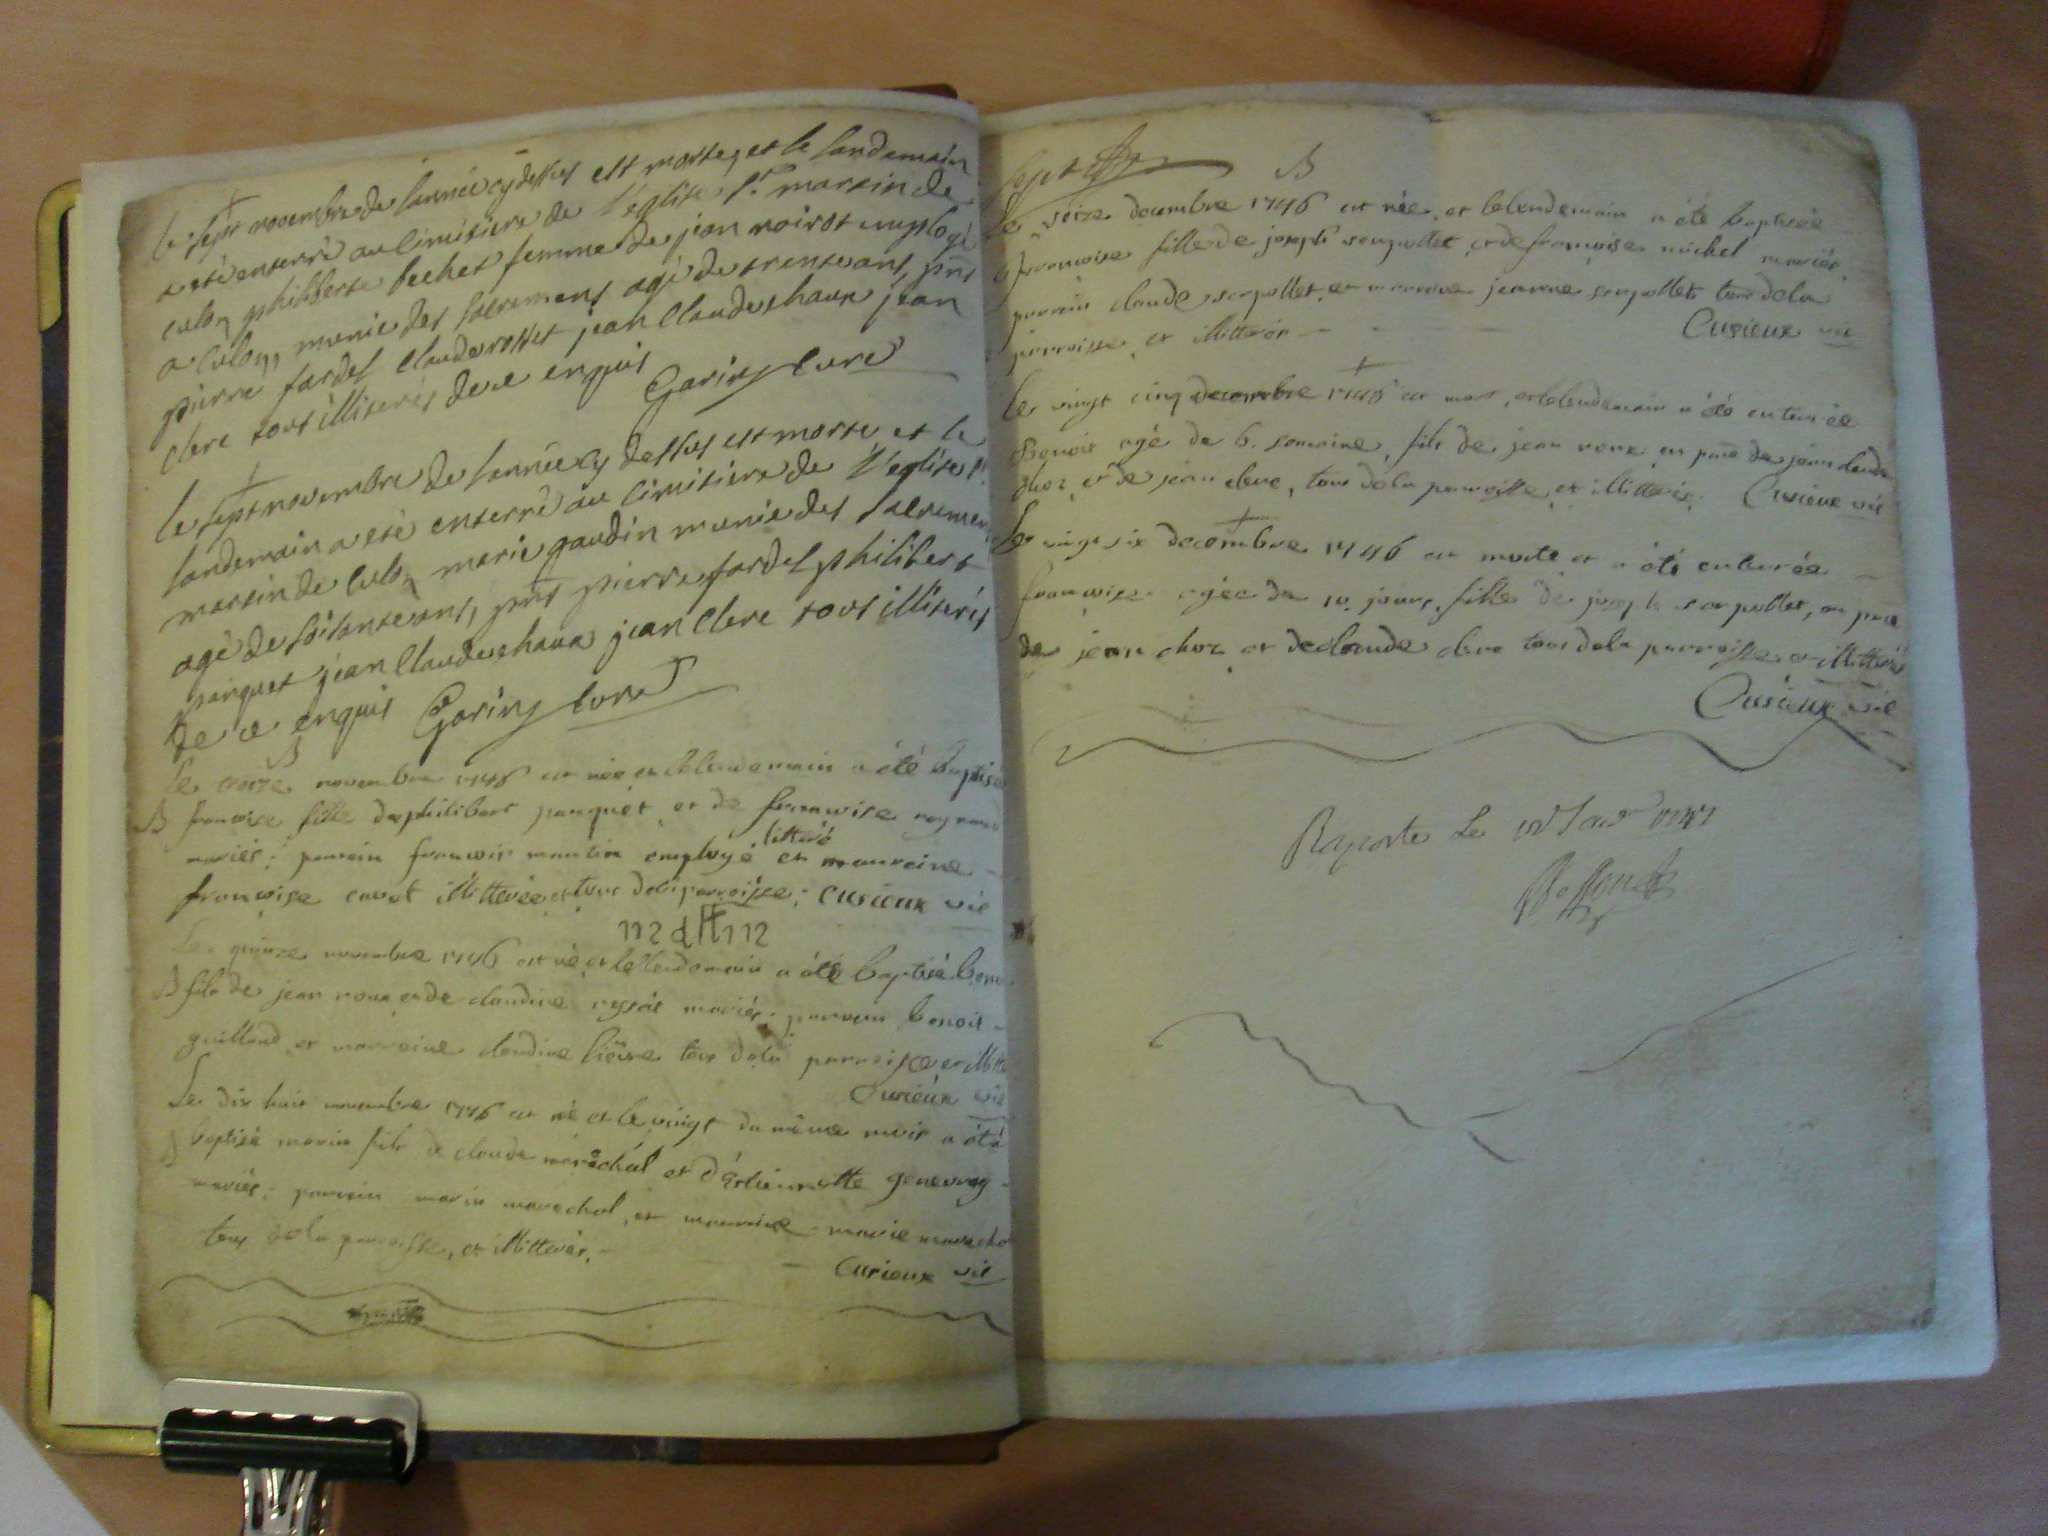 le sept novembre de lannée cy dessus est morte, et le landemain
a esté enterré au cimitiere de l'eglise st martin de
culoz philiberte bechet femme de jean noirot employé
a culoz, munie des sacremens agé de trente ans, pnts
pierre fardel claude rosset jean claude chaux jean
clerc tous illiterés de ce enquis Garin curé
le sept novembre de lannée cy dessus est morte et le
landemain a esté enterré au cimitiere de l'eglise st
martin de culoz marie gaudin munie des sacremens
agé de soisante ans, pnts pierre fardel philibert
panquet jean claude chaux jean clerc tous illiterés
de ce enquis Garin curé
B
Le treize novembre 1746 est née et le lendemain a été baptisée
B francoise fille de philibert panquet et de francoise
mariés: parrain francois employé litteré et marreine
francoise illitterée et tous de la parroisse; Curieux vic
112 d 112
Le quinze novembre 1746 est né et le lendemain a été baptisé benoit
B fils de jean roux et de claudine mariés: parrain benoit
guilland et marreine claudine tous de la parroisse et illitt
Curieux vic
Le dix huit novembre 1746 est né et le vingt du même mois a été
B baptisé marin fils de claude maréchal et d'Estiennette genevray
mariés; parrain marin marechal, et marreine marie marechal
tous de la parroisse, et illitterés.
Curieux vic
sept
B
Le seize decembre 1746 est née, et le lendemain a été baptisée
B francoise fille de joseph serpollet et de francoise michel mariés,
parrain claude serpollet et marreine jeanne serpollet tous de la
parroisse et illitterés
Curieux vic
Le vingt cinq decembre 1746 est mort, et le lendemain a été enterrée
Benoit agé de 6. semaine, fils de jean roux en pnce de jean claude
choz et de jean clerc, tous de la parroisse et illitterés. Curieux vic
Le vingt six decembre 1746 est morte et a été enterrée
francoise agée de 10. jours, fille de joseph serpollet, en pnce
de jean choz et de claude clerc tous de la parroisse et illitterés
Curieux vic
Raporte Le Janr 1747